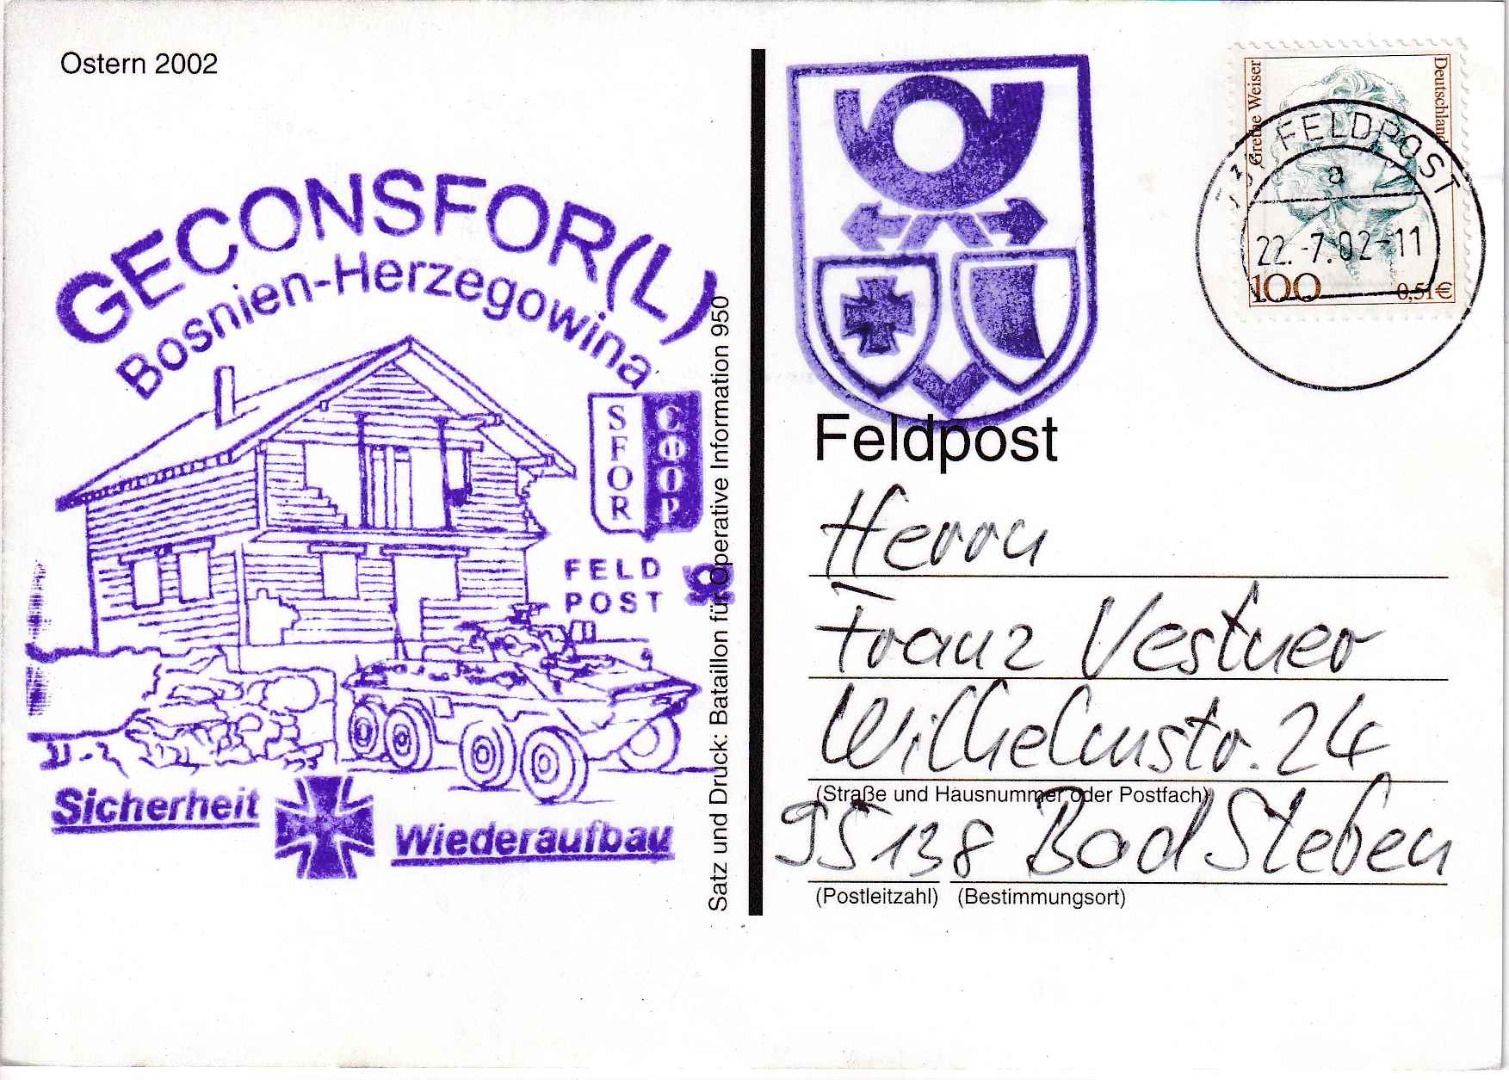 Ostern 2002
GECONSFOR(L)
Bosnien-Herzegowina
SFOR
COOP
FELD
POST
Sicherheit
Wiederaufbau
Satz und Druck: Bataillon für Operative Information 950
Grethe Weiser
Deutschland
100
0,51€
FELDPOST
a
22.-7.02-11
Feldpost
Herrn
Franz Vestner
Wilhelmstr. 24
(Straße und Hausnummer oder Postfach)
95138 Bad Steben
(Postleitzahl) (Bestimmungsort)